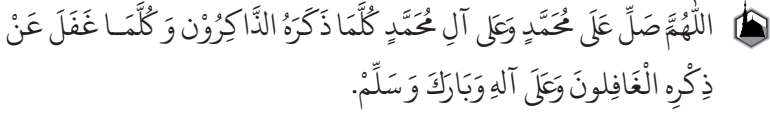 اللّٰهُمَّ صَلِّ عَلَى مُحَمَّدٍ وَعَلى آلِ مُحَمَّدٍ كُلَّمَا ذَكَرَهُ الذَّاكِرُوْن وَ كُلَّمَـا غَفَلَ عَنْ
ذِكْرِه الْغَافِلونَ وَعَلَى آلهِ وَبَارَكَ وَ سَلِّمْ.